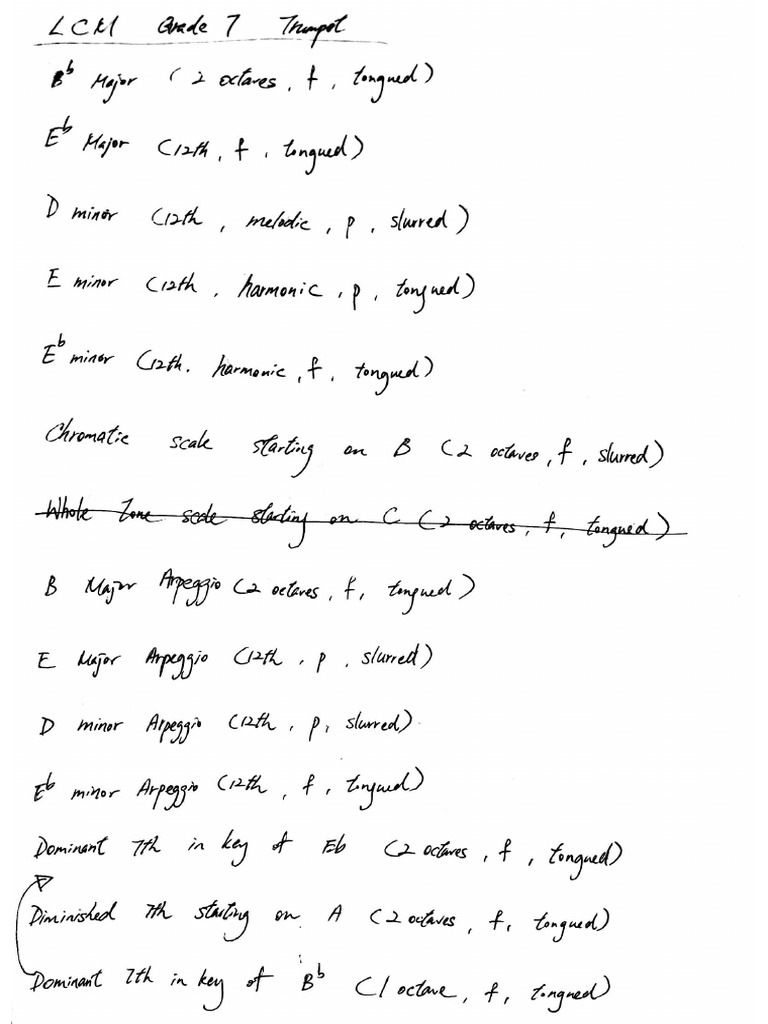 LCM Grade 7 Trumpet
B♭ Major (2 octaves, f, tongued)
E♭ Major (12th, f, tongued)
D minor (12th, melodic, p, slurred)
E minor (12th, harmonic, p, tongued)
E♭ minor (12th. harmonic, f, tongued)
Chromatic scale starting on B (2 octaves, f, slurred)
Whole Tone scale starting on C (2 octaves, f, tongued)
B Major Arpeggio (2 octaves, f, tongued)
E Major Arpeggio (12th, p, slurred)
D minor Arpeggio (12th, p, slurred)
E♭ minor Arpeggio (12th, f, tongued)
Dominant 7th in key of Eb (2 octaves, f, tongued)
Diminished 7th starting on A (2 octaves, f, tongued)
Dominant 7th in key of B♭ (1 octave, f, tongued)